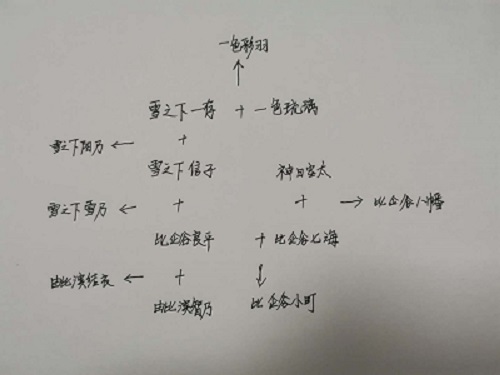 一色彩羽
↑
雪之下一存 + 一色琉璃
雪之下阳乃 ← +
雪之下信子 神日空太
雪之下雪乃 ← + + → 比企谷八幡
比企谷良平 + 比企谷七海
由比滨结衣 ← + ↓
由比滨智乃 比企谷小町